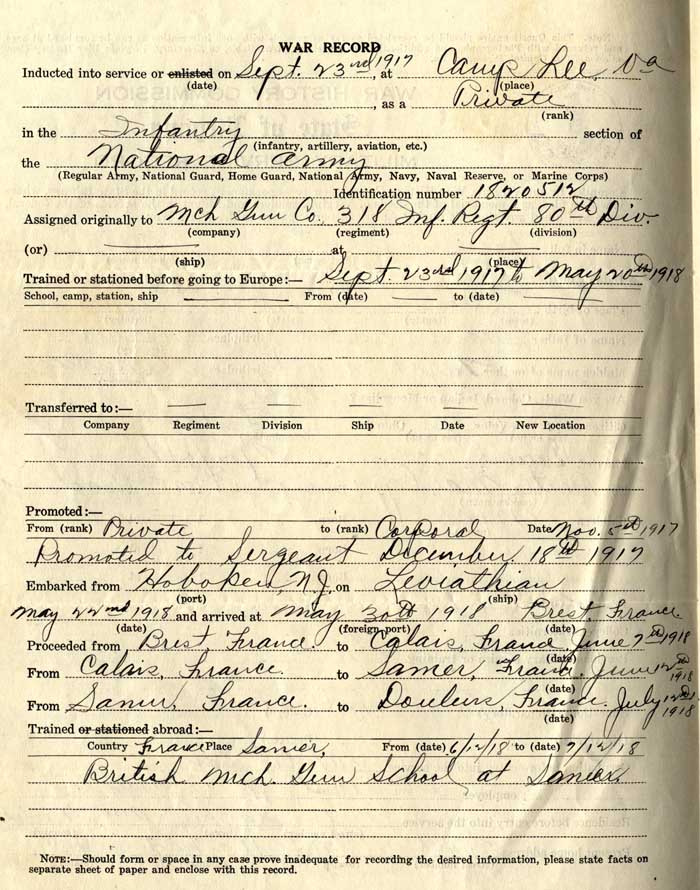 WAR RECORD
Inducted into service or enlisted on Sept. 23rd 1917, at Camp Lee, Va
(date) (place)
, as a Private
(rank)
in the Infantry section of
(infantry, artillery, aviation, etc.)
the National Army
(Regular Army, National Guard, Home Guard, National Army, Navy, Naval Reserve, or Marine Corps)
Identification number 1820512
Assigned originally to Mch Gun Co. 318 Inf. Regt. 80th Div.
(company) (regiment) (division)
(or) at
(ship) (place)
Trained or stationed before going to Europe:— Sept. 23rd 1917 to May 20th 1918
School, camp, station, ship From (date) to (date)
Transferred to:—
Company Regiment Division Ship Date New Location
Promoted:—
From (rank) Private to (rank) Corporal Date Nov. 5th 1917
Promoted to Sergeant December 18th 1917
Embarked from Hoboken, N.J. on Leviathian
(port) (ship)
May 22nd 1918 and arrived at May 30th 1918 Brest, France.
(date) (foreign port) (date)
Proceeded from Brest, France. to Calais, France. June 7th 1918
(date)
From Calais, France to Samer, France. June 12th 1918
(date)
From Samer, France. to Doulens, France. July 12th 1918
(date)
Trained or stationed abroad:—
Country France Place Samer, From (date) 6/12/18 to (date) 7/12/18
British Mch. Gun School at Samer.
NOTE:—Should form or space in any case prove inadequate for recording the desired information, please state facts on
separate sheet of paper and enclose with this record.